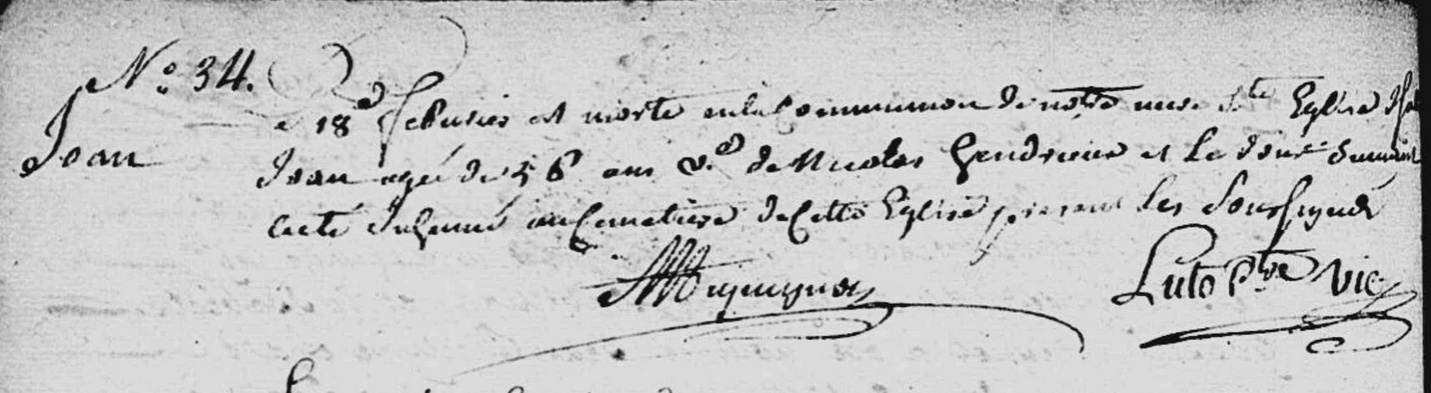 N.° 34.
Jean
Le 18 février est morte en la Communion de notre mere Ste Eglise
Jean agée de 56 ans Ve de Nicolas Gendreau et Le jour suivant
a eté inhumé au Cemetiere de Cette Eglise present Les Soussignés
Luto Ptre Vic